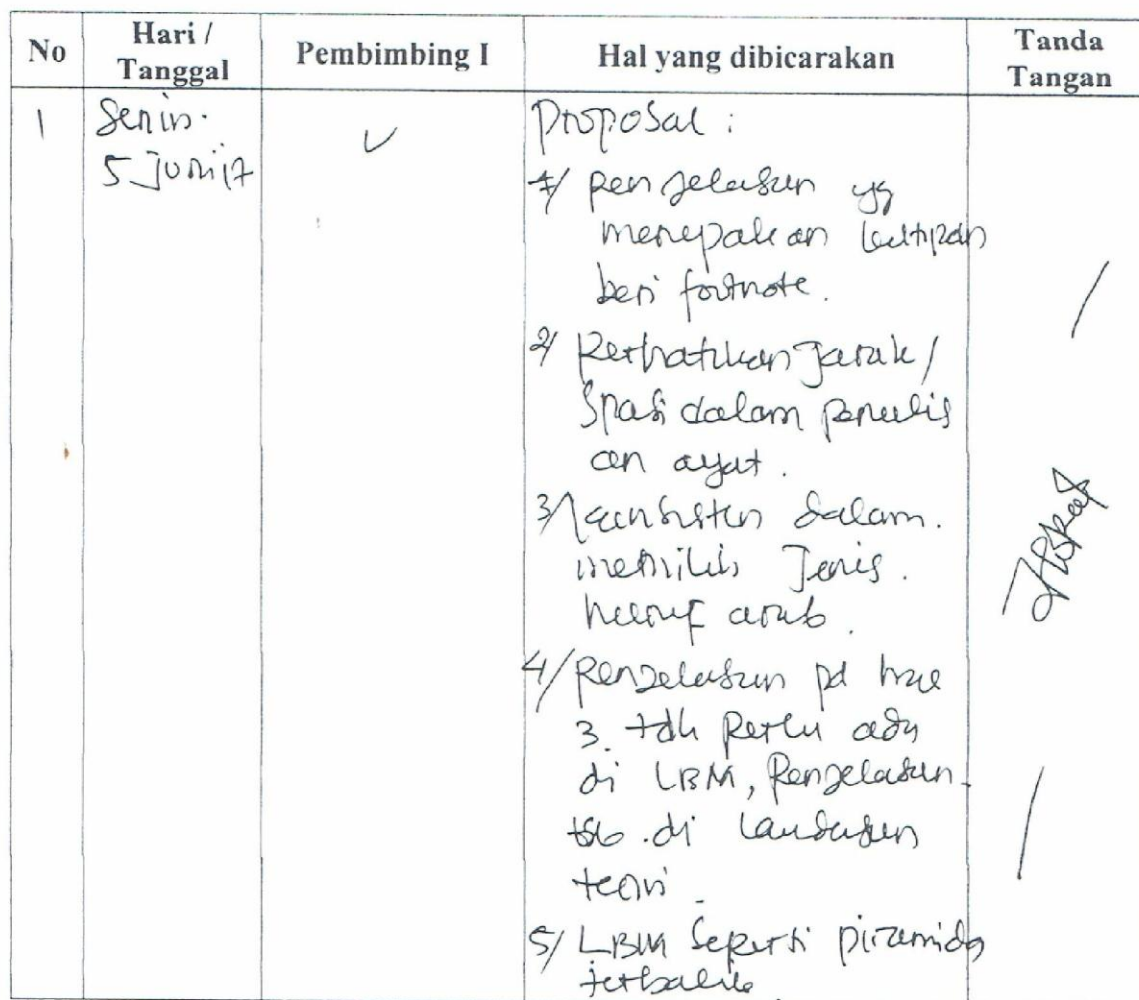 No Hari / Tanggal Pembimbing I Hal yang dibicarakan Tanda Tangan
1 Senin. ✓ Proposal :
5 Juni 17
1/ Penjelasan yg
merupakan kutipan
beri footnote.
2/ Perhatikan Jarak /
Spasi dalam penulis
an ayat.
3/ konsisten dalam.
memilih Jenis.
huruf arab.
4/ Penjelasan pd hal
3. tdk Perlu ada
di LBM, Penjelasan
tsb. di landasan
teori.
5/ LBM Seperti piramida
terbalik.